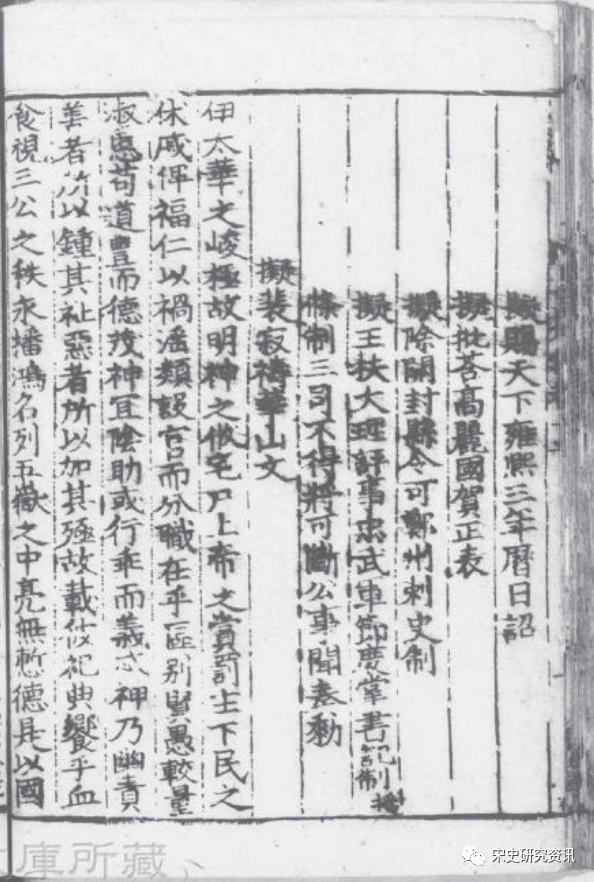 擬賜天下雍熙三年曆日詔
擬批荅高麗國賀正表
擬除開封縣令可鄭州刺史制
擬王扶大理評事忠武軍節度掌書記制
條制三司不得將可斷公事聞奏勑
擬裴寂禱華山文
伊太華之峻極故明神之攸宅尸上帝之賞罰主下民之
休戚俾福仁以禍淫類設官而分職在乎區别賢愚較量
淑慝苟道豊而德茂神冝陰助或行乖而義忒神乃幽責
善者所以鍾其祉惡者所以加其殛故載攸祀典饗乎血
食視三公之秩永播鴻名列五嶽之中亮無慙德是以國
庫所藏
宋史研究资讯